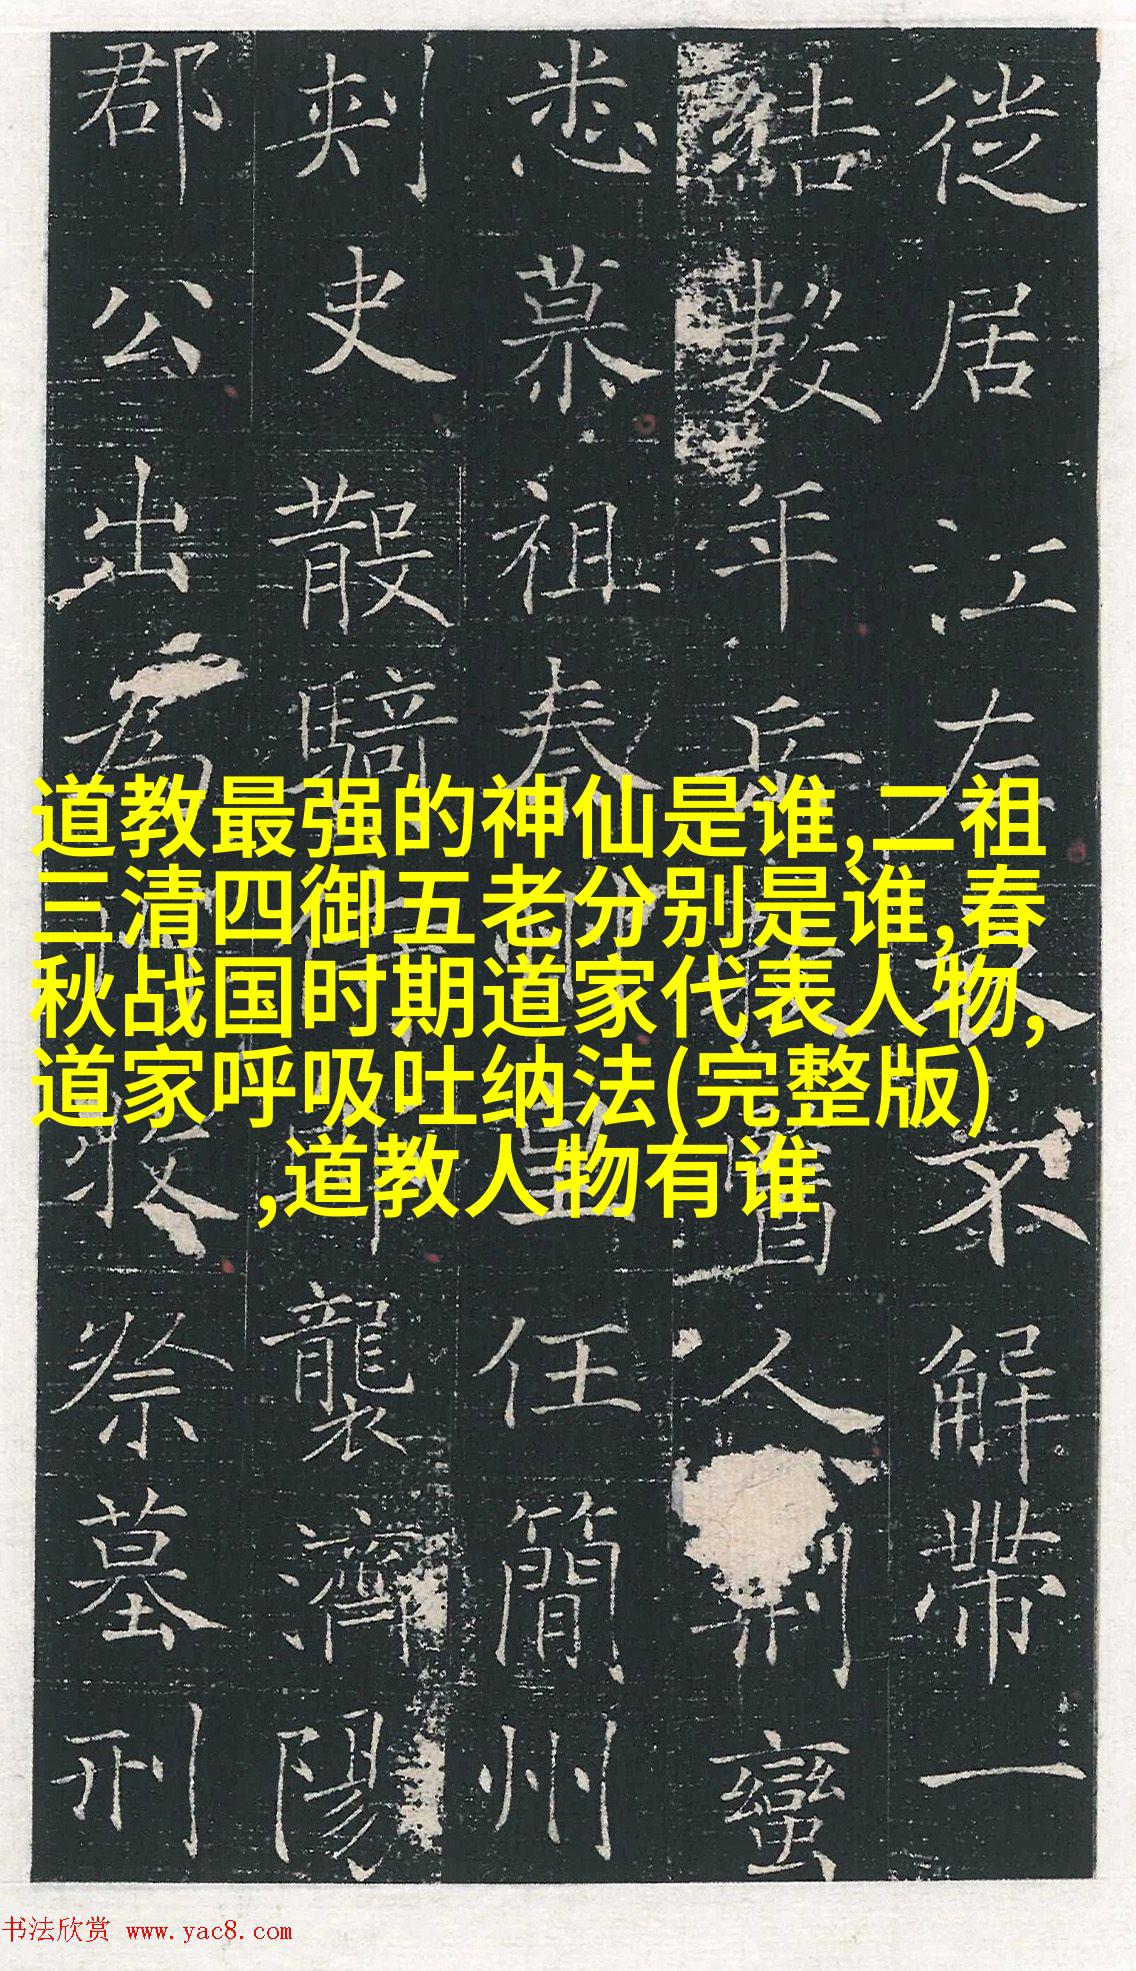 徙居江左衣不解帶一
結數年岳人荊蠻
悉慕祖奉皇任簡州
刺史散騎侍郎襲濟陽
郡公出為牧祭墓刑
道教最强的神仙是谁,二祖
三清四御五老分别是谁,春
秋战国时期道家代表人物,
道家呼吸吐纳法(完整版)
,道教人物有谁
书法欣赏 www.yac8.com